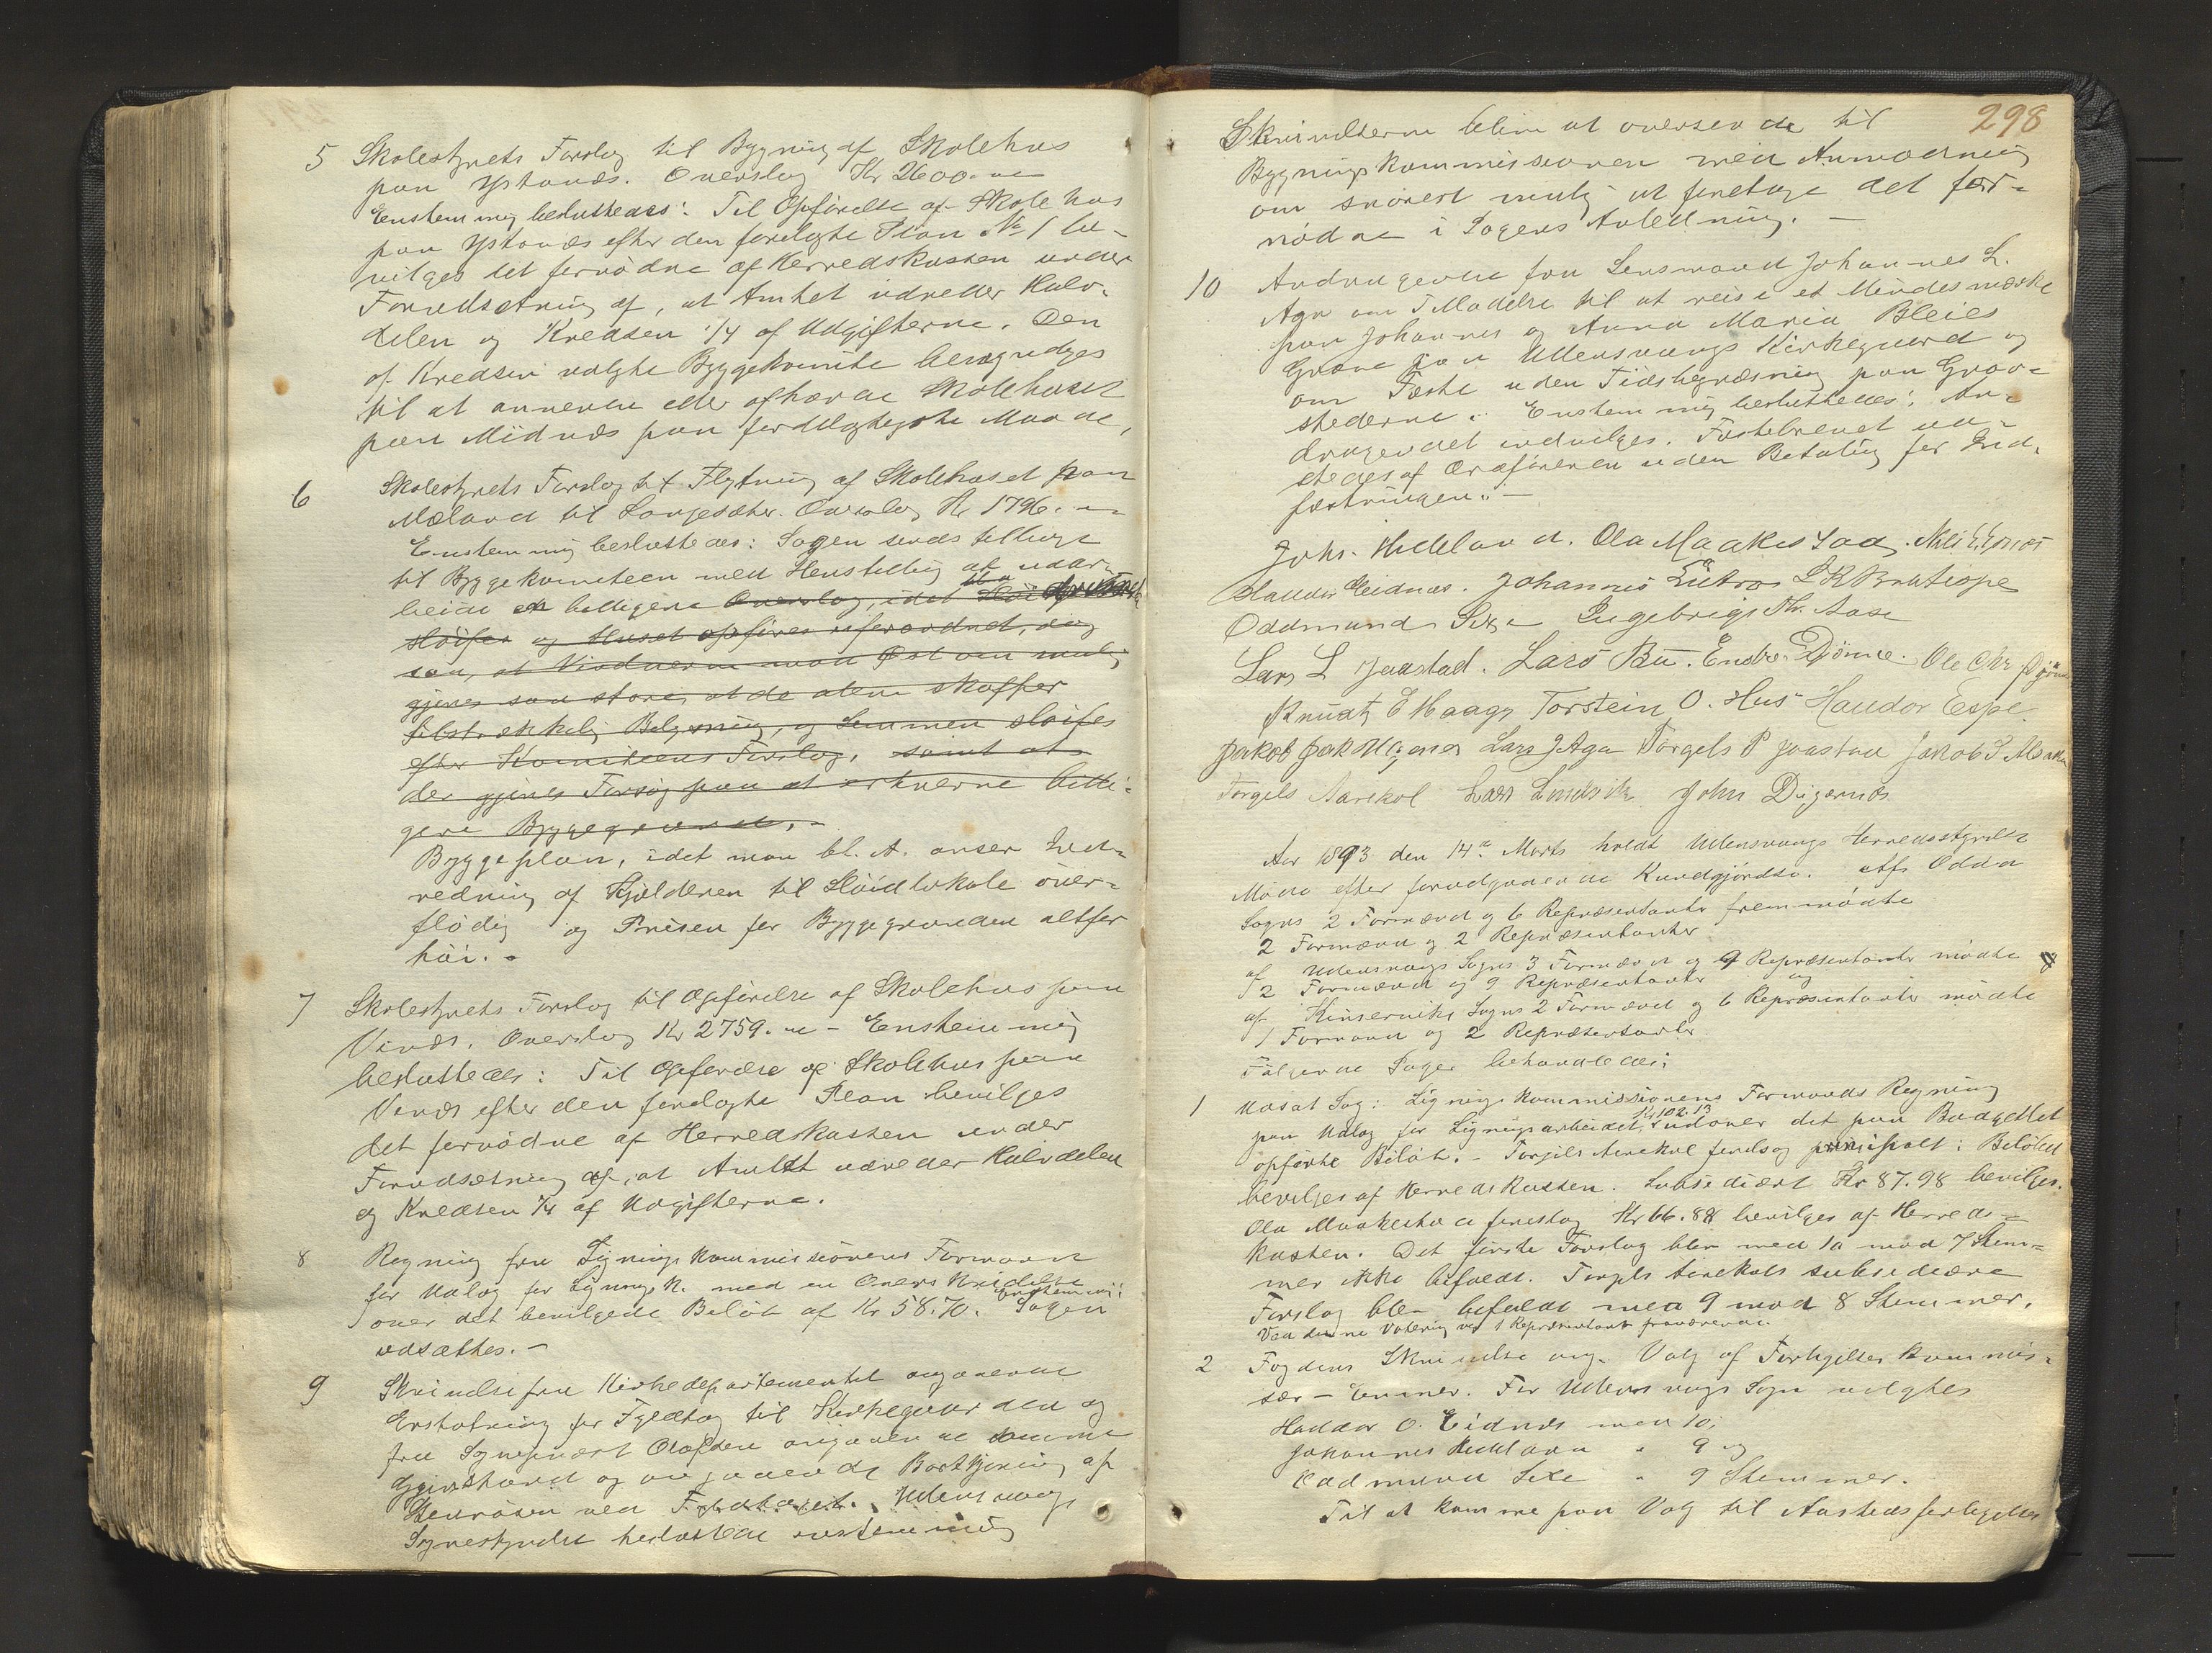 5 Skolestyrets Forslag til Bygning af Skolehus
paa Ystanæs. Overslag Kr 2600.
Enstemmig besluttedes: Til Opførelse af Skolehus
paa Ystanæs efter den forelagte Plan No 1 be-
vilges det fornødne af Herredskassen under
Forudsetning af, at Amtet udreder Halv-
delen og Kredsen 1/4 af Udgifterne. Den
af Kredsen valgte Byggekomite bemyndiges
til at anvende eller afhænde Skolehuset
paa Midnæs paa fordelagtigste Maade,
6 Skolestyrets Forslag til Flytning af Skolehuset paa
Mæland til Langesæter. Overslag Kr 1796.
Enstemmig besluttedes: Sagen sendes tilbage
til Byggekomiteen med Henstilling at udar-
beide en billigere Overslag, idet
sløifes og Huset opføres uforandret, dog
saa, at Vinduerne mod Øst om mulig
gjøres saa store, at de alene skaffer
tilstrækkelig Belysning, og Lemmen sløifes
efter Komiteens Forslag, samt at
der gjøres Forsøg paa at erhverve billi-
gere Byggegrund.
Byggeplan, idet man bl. A. anser Ind-
redning af Kjelderen til Sløidlokale over-
flødig og Prisen for Byggegrunden altfor
høi. -
7 Skolestyrets Forslag til Opførelse af Skolehus paa
Vinæs. Overslag Kr 2759. - Enstemmig
besluttedes: Til Opførelse af Skolehus paa
Vinæs efter den forelagte Plan bevilges
det fornødne af Herredskassen under
Forudsætning af, at Amtet udreder Halvdelen
og Kredsen 1/4 af Udgifterne.
8 Regning fra Ligningskommissionens Formand
for Udlæg for Lignings K. med en Overskridelse
over det bevilgede Beløb af Kr 58.70. Enstemmig: Sagen
udsættes. -
9 Skrivelse fra Kirkedepartementet angaaende
Erstatning for Fyldtag til Kirkegaarden og
fra Sogneprest Olafsen angaaende samme
Gjenstand og angaaende Bortkjøring af
Stenrøsen ved Fyldtaget. Ullensvangs
Sognestyrelse besluttede enstemmig
298
Skrivelserne blive at oversende til
Bygningskommissionen med Anmodning
om snarest mulig at foretage det for-
nødne i Sagens Anledning. -
10 Andragende fra Lensmand Johannes L.
Aga om Tilladelse til at reise et Mindesmærke
paa Johannes og Anna Maria Bleies
Grave paa Ullensvangs Kirkegaard og
om Fæste uden Tidsbegræsning paa Grav-
stederne. Enstemmig besluttedes: An-
dragendet indvilges. Fæstebrevet ud-
stedes af Ordføreren uden Betaling for Ind-
fæstningen. -
Johs. Hildeland. Ola Maakestad.
Haldor Eidnæs. Johannes Lutro L K Bratespe
Oddmund Sexe Ingebrigt Th. Aase
Lars L Jaastad. Lars Bu. Endre Djønne. Ole Chr Djønne
Knud E Haaga Torstein O. Hus Haldor Espe
Jakob Jak Lars J Aga Torgels P Jaastad Jakob S
Torgels Aarekol Lars Lindvik John Digernæs
Aar 1893 den 14de Marts holdt Ullensvangs Herredsstyrelse
Møde efter forudgaaende Kundgjørelse. Af Odda
Sogns 2 Formænd og 6 Repræsentanter fremmødte
2 Formænd og 2 Repræsentanter
af Ullensvangs Sogns 3 Formænd og 9 Repræsentanter mødte
2 Formænd og 9 Repræsentanter og
af Kinserviks Sogns 2 Formænd og 6 Repræsentanter mødte
1 Formand og 2 Repræsentanter
Følgende Sager behandledes:
1 Udsat Sag: Ligningskommissionens Formands Regning
paa Udlæg for Ligningsarbeidet, Kr 102.13 udover det paa Budgettet
opførte Beløb. - Torgils Aarekol foreslog prinsipalt: Beløbet
bevilges af Herredskassen. Subsidiært Kr 87.98 bevilges.
Ola Maakestad foreslog Kr 66.88 bevilges af Herreds-
kassen. Det første Forslag blev med 10 mod 7 Stem-
mer ikke bifaldt. Torgils Aarekols subsidiære
Forslag blev bifaldt med 9 mod 8 Stemmer.
Ved denne Votering var 1 Repræsentant fraværende.
2 Fogdens Skrivelse ang. Valg af Forligelseskommis-
sær-Emner. For Ullensvangs Sogn valgtes
Haldor O. Eidnæs med 10,
Johannes Hildeland " 9 og
Oddmund Sexe " 9 Stemmer.
Til at komme paa Valg til Aastedsforligelses